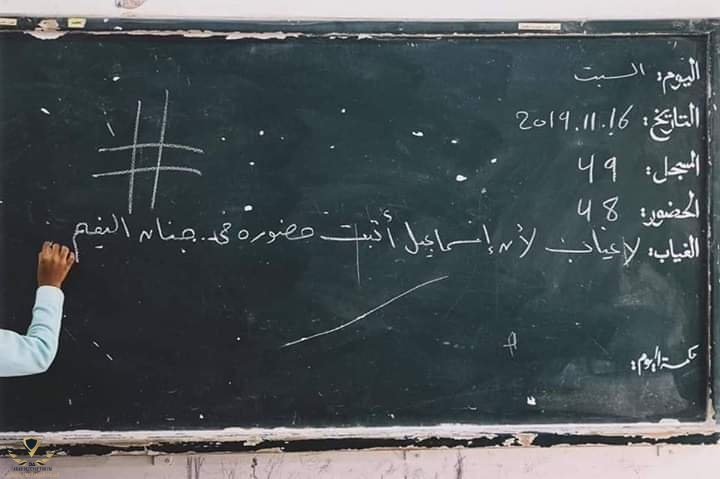 اليوم: السبت
التاريخ: 2019.11.16
المسجل: 49
الحضور: 48
الغياب: لا غياب لأن إسماعيل أثبت حضوره في جنات النعيم
حكمة اليوم: